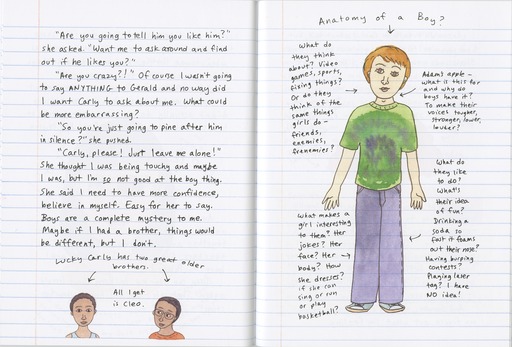 "Are you going to tell him you like him?"
she asked. "Want me to ask around and find
out if he likes you?"
"Are you crazy?!" Of course I wasn't going
to say ANYTHING to Gerald and no way did
I want Carly to ask about me. What could
be more embarrassing?
"So you're just going to pine after him
in silence?" she pushed.
"Carly, please! Just leave me alone!"
She thought I was being touchy and maybe
I was, but I'm so not good at the boy thing.
She said I need to have more confidence,
believe in myself. Easy for her to say.
Boys are a complete mystery to me.
Maybe if I had a brother, things would
be different, but I don't.
Lucky Carly has two great older
brothers.
All I get
is Cleo.
Anatomy of a Boy?
What do
they think
about? Video
games, sports,
fixing things?
Or do they
think of the
same things
girls do-
friends,
enemies,
frenemies?
Adam's apple-
what is this for
and why do
boys have it?
To make their
voices tougher,
stronger, lower,
louder?
What makes a
girl interesting
to them? Her
jokes? Her
face? Her
body? How
she dresses?
if she can
sing or run
or play
basketball?
What do
they like
to do?
What's
their idea
of fun?
Drinking a
soda so
fast it foams
out their nose?
Having burping
contests?
Playing laser
tag? I have
NO idea!